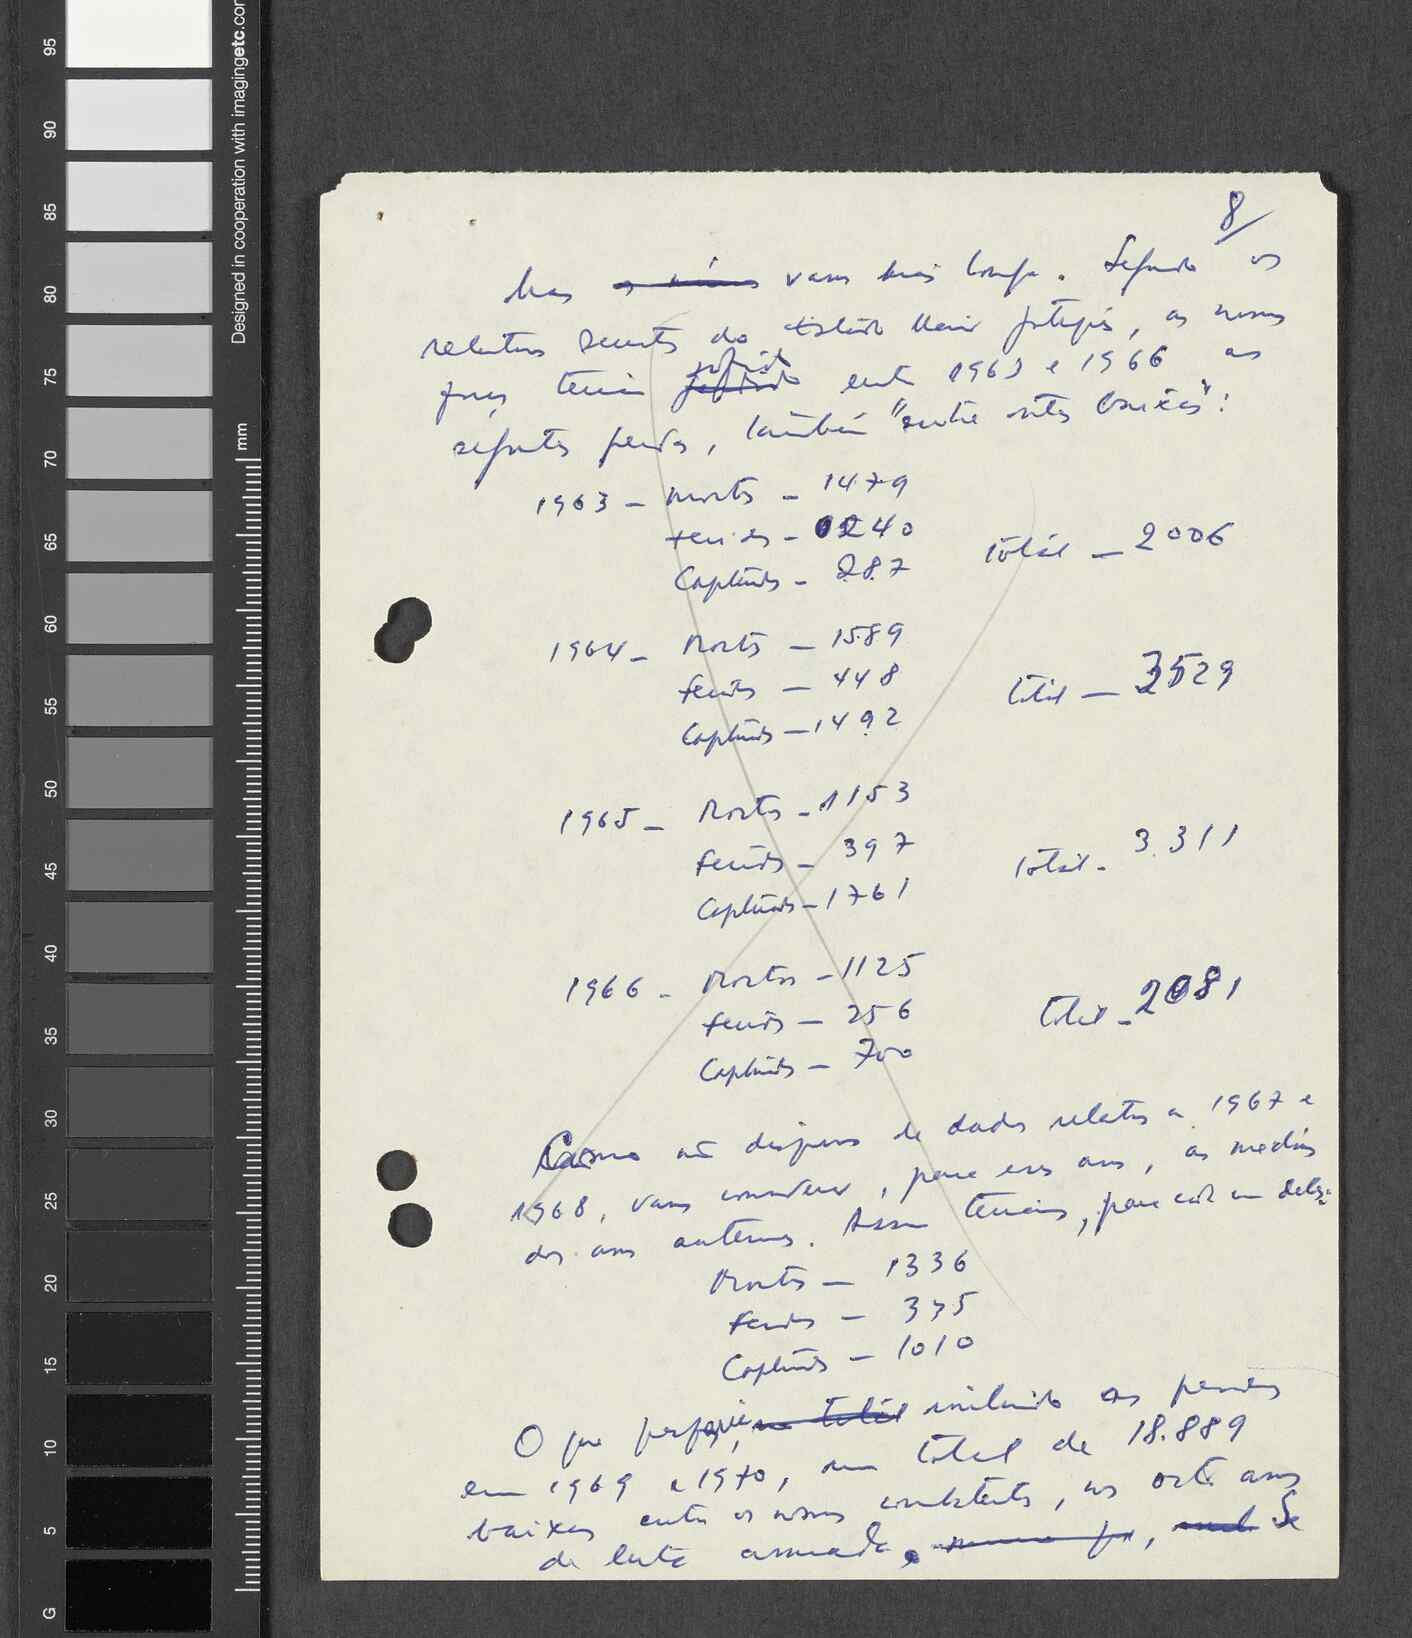 8/
Mas vamos mais longe. Segundo os
relatórios secretos do Estado Maior português, as nossas
forças teriam sofrido entre 1963 e 1966 as
seguintes perdas, também "entre outras baixas":
1963 - Mortos - 1479
feridos - 0240
Capturados - 287
total - 2006
1964 - Mortos - 1589
feridos - 448
Capturados - 1492
total - 3529
1965 - Mortos - 1153
feridos - 397
Capturados - 1761
total - 3.311
1966 - Mortos - 1125
feridos - 256
Capturados - 700
total - 2081
Como não dispomos de dados relativos a 1967 e
1968, vamos considerar, para esses anos, as médias
dos anos anteriores. Assim teríamos, para cada um deles:
Mortos - 1336
feridos - 375
Capturados - 1010
O que perfaria, incluindo as perdas
em 1969 e 1970, um total de 18.889
baixas entre os nossos combatentes, nos oito anos
de luta armada, Se
Designed in cooperation with imagingetc.com
mm
95
90
85
80
75
70
65
60
55
50
45
40
35
30
25
20
15
10
5
G